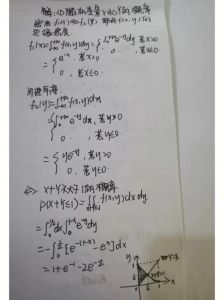 解: (1) 随机变量X和Y的概率
f_X(x)=∫_{-∞}^{+∞} f(x,y)dy={∫_x^{+∞} e^{-y}dy, 若x>0
0, 若x≤0.
={e^{-x}, 若x>0
0, 若x≤0.
同理可得
f_Y(y)=∫_{-∞}^{+∞} f(x,y)dx
={∫_0^y e^{-y}dx, 若y>0
0, 若y≤0.
={ye^{-y}, 若y>0
0, 若y≤0.
(2) X+Y不大于1的概率
P(X+Y≤1)=∬ f(x,y)dxdy
=∫_0^{1/2}dx∫_x^{1-x} e^{-y}dy
=-∫_0^{1/2}[e^{-(1-x)}-e^{-x}]dx
=1+e^{-1}-2e^{-1/2}